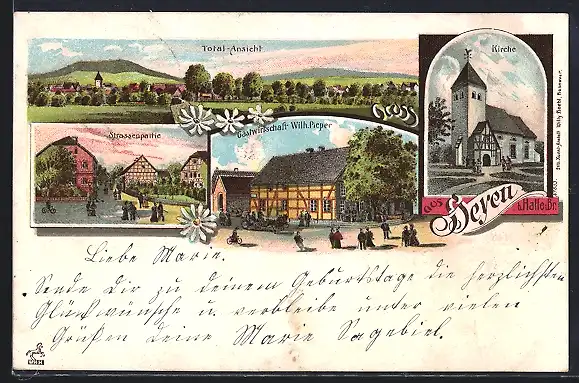 Total-Ansicht
Kirche
Gruss
Strassenpartie
Gastwirtschaft Wilh. Pieper
aus
Heyen
b. Halle Br.
Liebe Marie.
Sende Dir zu deinem Geburtstage die herzlichsten
Glückwünsche u. verbleibe unter vielen
Grüßen deine Marie Sagebiel.